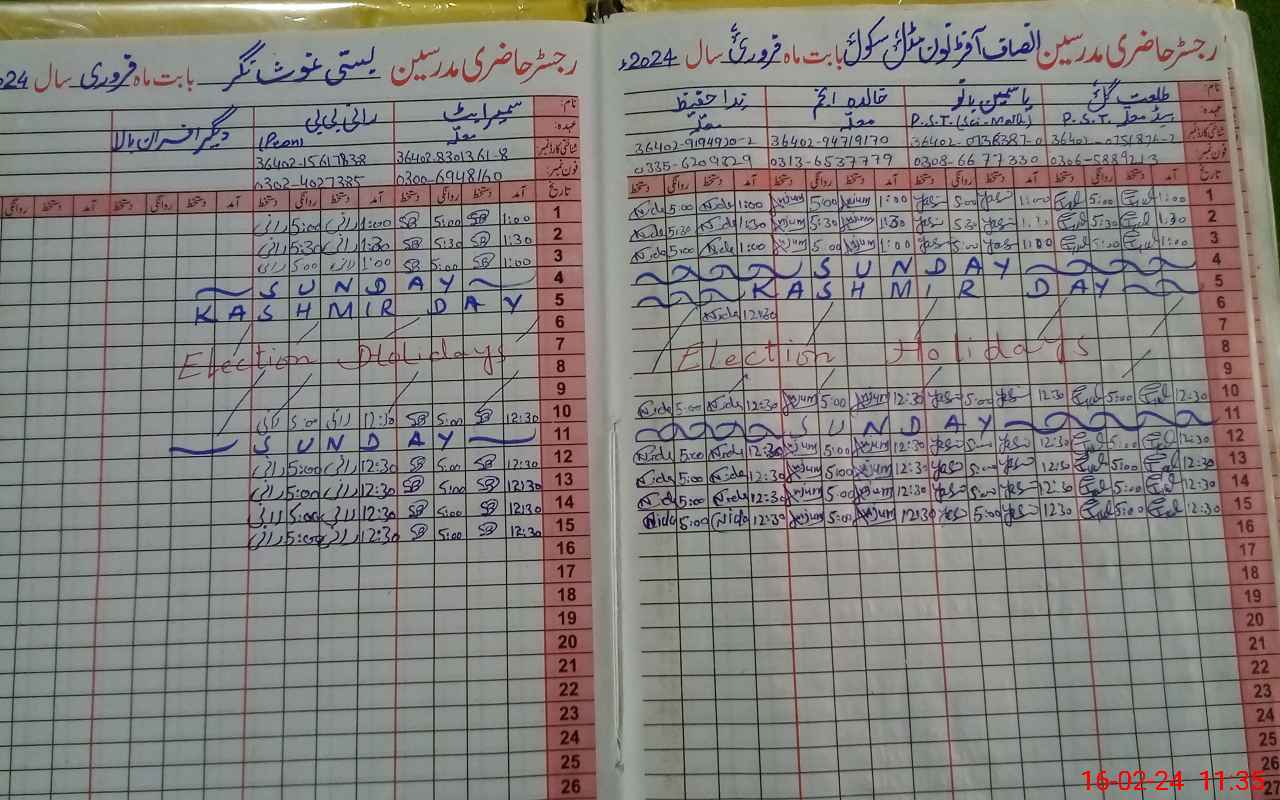 رجسٹر حاضری مدرسین انصاف آفٹرنون مڈل سکول بابت ماہ فروری سال 2024ء
نام: طلعت گل یاسمین بانو خالدہ انجم ندا حفیظ
عہدہ: P.S.T. P.S.T. (Sci-Math) معلمہ معلمہ
شناختی کارڈ نمبر 36402-94719170 36402-9194920-2
فون نمبر: 0306-5889213 0308-6677330 0313-6537779 0335-6209829
تاریخ آمد دستخط روانگی دستخط آمد دستخط روانگی دستخط آمد دستخط روانگی دستخط آمد دستخط روانگی دستخط
1 1:00 5:00 1:00 5:00 1:00 5:00 1:00 Nida 5:00 Nida
2 1:30 5:30 5:30 1:30 5:30 1:30 Nida 5:30 Nida
3 1:00 5:00 1:00 5:00 1:00 5:00 1:00 Nida 5:00 Nida
4 SUNDAY
5 KASHMIR DAY
6 Nida 12:30
7
8 Election Holidays
9
10 12:30 5:00 12:30 5:00 12:30 5:00 12:30 Nida 5:00 Nida
11 SUNDAY
12 12:30 5:00 12:30 5:00 12:30 5:00 12:30 Nida 5:00 Nida
13 12:30 5:00 12:30 5:00 12:30 5:00 12:30 Nida 5:00 Nida
14 12:30 5:00 12:30 5:00 12:30 5:00 12:30 Nida 5:00 Nida
15 12:30 5:00 12:30 5:00 12:30 5:00 12:30 Nida 5:00 Nida
16
17
18
19
20
21
22
23
24
25
26
27
رجسٹر حاضری مدرسین بستی غوث نگر بابت ماہ فروری سال 2024
نام: سمیرا بٹ رانی بی بی دیگر افسران بالا
عہدہ: معلمہ (Peon)
شناختی کارڈ نمبر 36402-8301361-8 36402-1561783-8
فون نمبر: 0300-6948160 0302-4027385
تاریخ آمد دستخط روانگی دستخط آمد دستخط روانگی دستخط آمد دستخط روانگی دستخط آمد دستخط روانگی
1 1:00 SB 5:00 SB 1:00 رانی 5:00 رانی
2 1:30 SB 5:30 SB 1:30 رانی 5:30 رانی
3 1:00 SB 5:00 SB 1:00 رانی 5:00 رانی
4 SUNDAY
5 KASHMIR DAY
6
7 Election Holidays
8
9
10 12:30 SB 5:00 SB 12:30 رانی 5:00 رانی
11 SUNDAY
12 12:30 SB 5:00 SB 12:30 رانی 5:00 رانی
13 12:30 SB 5:00 SB 12:30 رانی 5:00 رانی
14 12:30 SB 5:00 SB 12:30 رانی 5:00 رانی
15 12:30 SB 5:00 SB 12:30 رانی 5:00 رانی
16
17
18
19
20
21
22
23
24
25
26
16-02-24 11:35